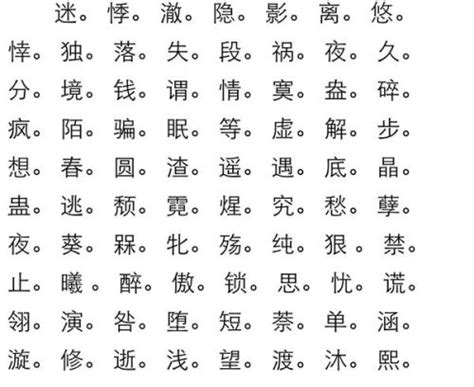 迷。悸。澈。隐。影。离。悠。
悻。独。落。失。段。祸。夜。久。
分。境。钱。谓。情。寞。盎。碎。
疯。陌。骗。眠。等。虚。解。步。
想。春。圆。渣。遥。遇。底。晶。
蛊。逃。颓。霓。煋。究。愁。孽。
夜。葵。槑。牝。殇。纯。狠。禁。
止。曦。醉。傲。锁。思。忧。谎。
翎。演。咎。堕。短。萘。单。涵。
漩。修。逝。浅。望。渡。沐。熙。